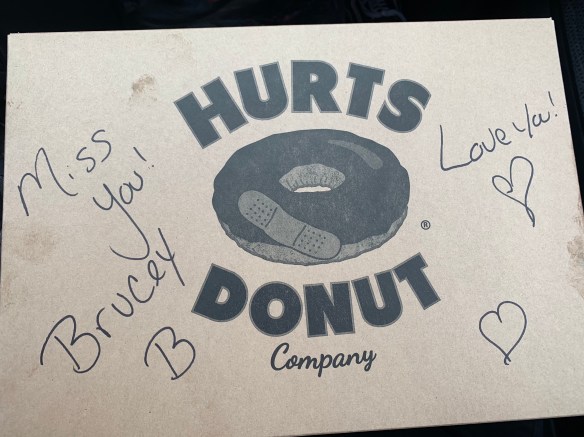 Miss
You!
Brucey
B
HURTS
DONUT
®
Company
Love Ya!